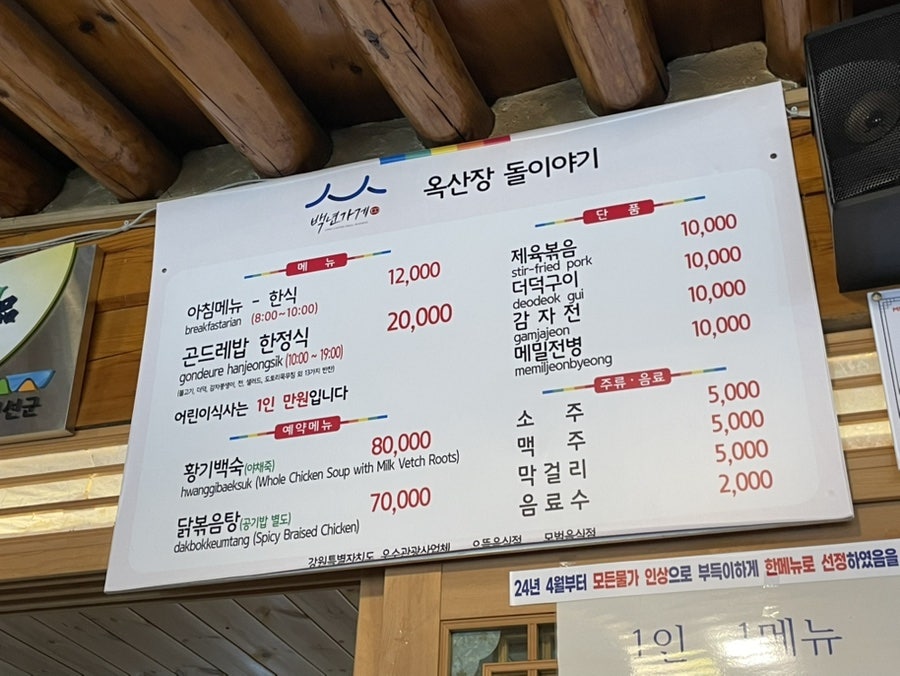 백년가게
옥산장 돌이야기
메 뉴
아침메뉴 - 한식 12,000
breakfastarian (8:00~10:00)
곤드레밥 한정식 20,000
gondeure hanjeongsik (10:00 ~ 19:00)
(불고기, 더덕, 감자붕생이, 전, 샐러드, 도토리묵무침 외 13가지 반찬)
어린이식사는 1인 만원입니다
예약메뉴
황기백숙(야채죽) 80,000
hwanggibaeksuk (Whole Chicken Soup with Milk Vetch Roots)
닭볶음탕(공기밥 별도) 70,000
dakbokkeumtang (Spicy Braised Chicken)
단 품
제육볶음 10,000
stir-fried pork
더덕구이 10,000
deodeok gui
감 자 전 10,000
gamjajeon
메밀전병 10,000
memiljeonbyeong
주류 · 음료
소 주 5,000
맥 주 5,000
막 걸 리 5,000
음 료 수 2,000
강원특별자치도 우수관광사업체 으뜸음식점 모범음식점
24년 4월부터 모든물가 인상으로 부득이하게 한메뉴로 선정하였음을
1인 1메뉴